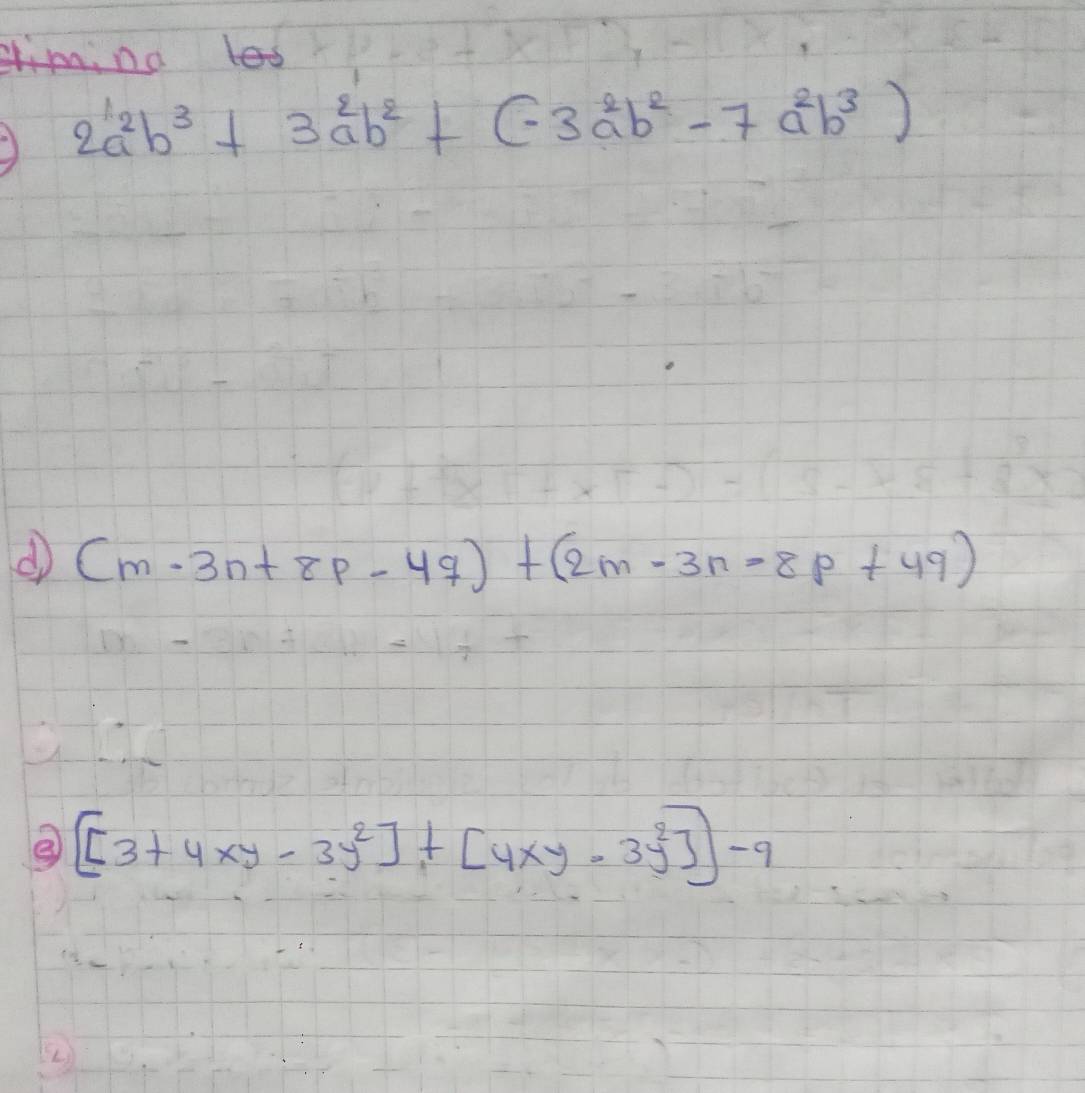 elimina los
c) 2a²b³ + 3a²b² + (-3a²b² - 7a²b³)
d) (m - 3n + 8p - 4q) + (2m - 3n - 8p + 4q)
e) [[3 + 4xy - 3y²] + [4xy - 3y²]] - 9